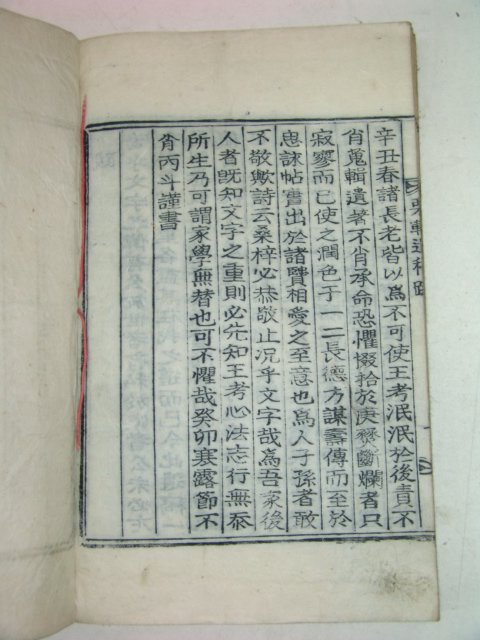 辛丑春諸長老皆以爲不可使王考泯泯於後責不
肖蒐輯遺著不肖承命恐懼掇拾於庚癸斷爛者只
寂寥而已使之潤色于一二長德方謀壽傳而至於
忠諫帖實出於諸賢相愛之至意也爲人子孫者敢
不敬歟詩云桑梓必恭敬止况乎文字哉爲吾家後
人者旣知文字之重則必先知王考心法志行無忝
所生乃可謂家學無替也可不懼哉癸卯寒露節不
肖丙斗謹書